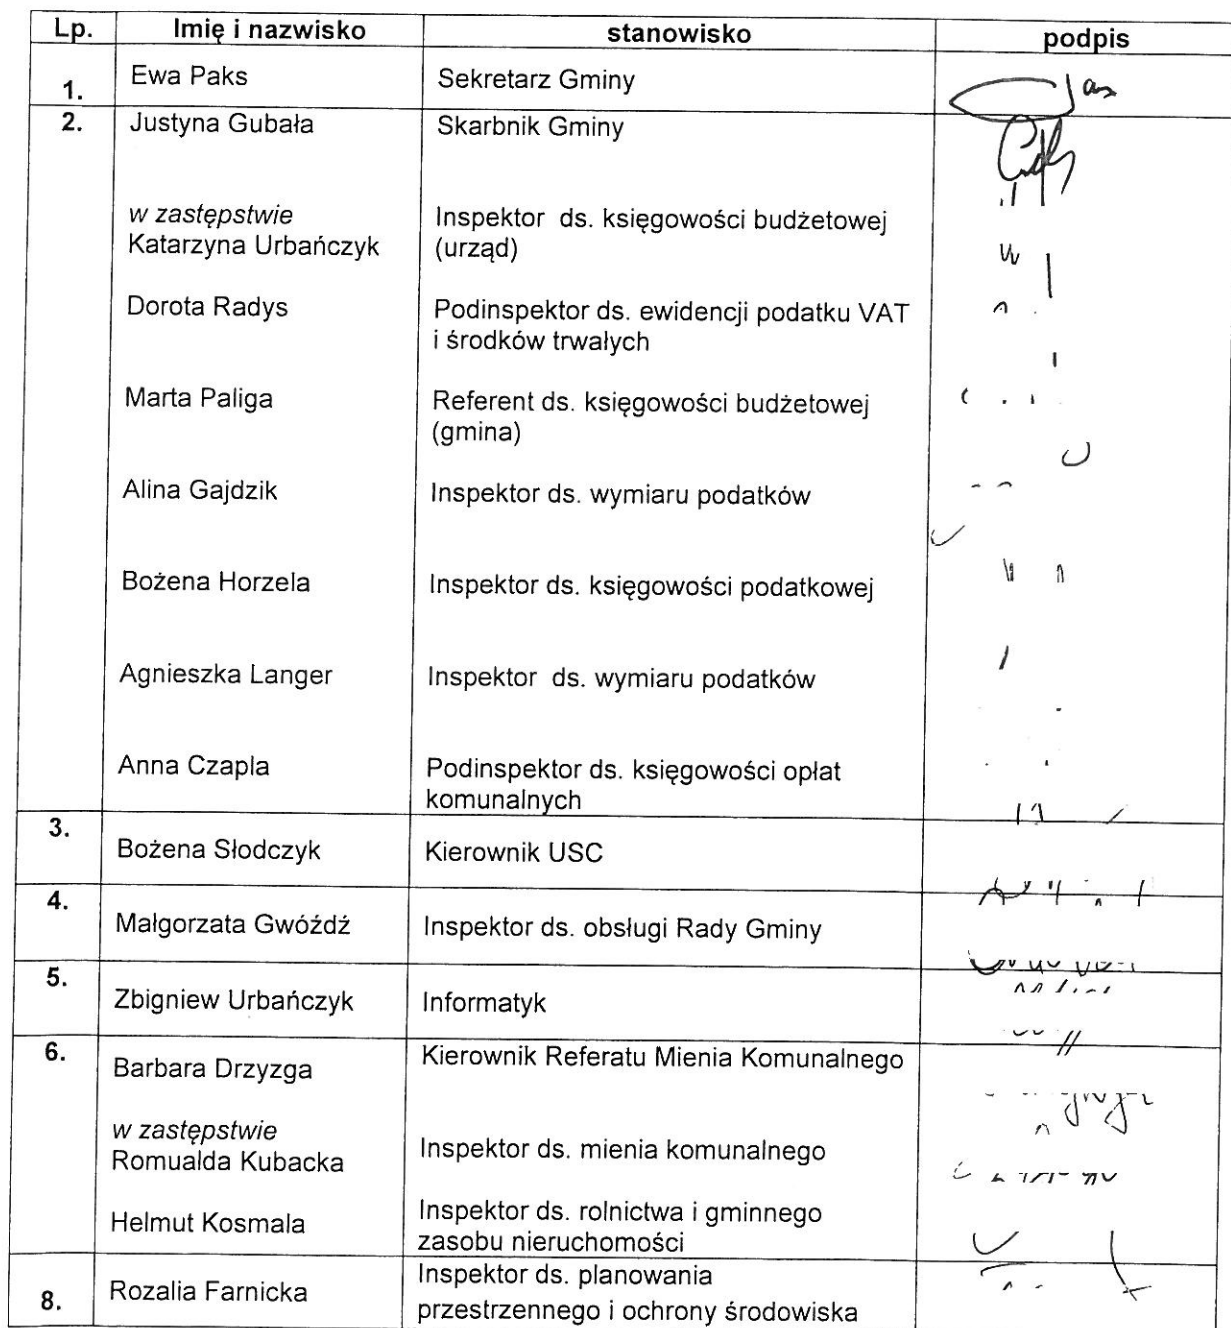 Lp. Imię i nazwisko stanowisko podpis
1. Ewa Paks Sekretarz Gminy
2. Justyna Gubała Skarbnik Gminy
w zastępstwie Inspektor ds. księgowości budżetowej
Katarzyna Urbańczyk (urząd)
Dorota Radys Podinspektor ds. ewidencji podatku VAT
i środków trwałych
Marta Paliga Referent ds. księgowości budżetowej
(gmina)
Alina Gajdzik Inspektor ds. wymiaru podatków
Bożena Horzela Inspektor ds. księgowości podatkowej
Agnieszka Langer Inspektor ds. wymiaru podatków
Anna Czapla Podinspektor ds. księgowości opłat
komunalnych
3. Bożena Słodczyk Kierownik USC
4. Małgorzata Gwóźdź Inspektor ds. obsługi Rady Gminy
5. Zbigniew Urbańczyk Informatyk
6. Barbara Drzyzga Kierownik Referatu Mienia Komunalnego
w zastępstwie
Romualda Kubacka Inspektor ds. mienia komunalnego
Helmut Kosmala Inspektor ds. rolnictwa i gminnego
zasobu nieruchomości
8. Rozalia Farnicka Inspektor ds. planowania
przestrzennego i ochrony środowiska